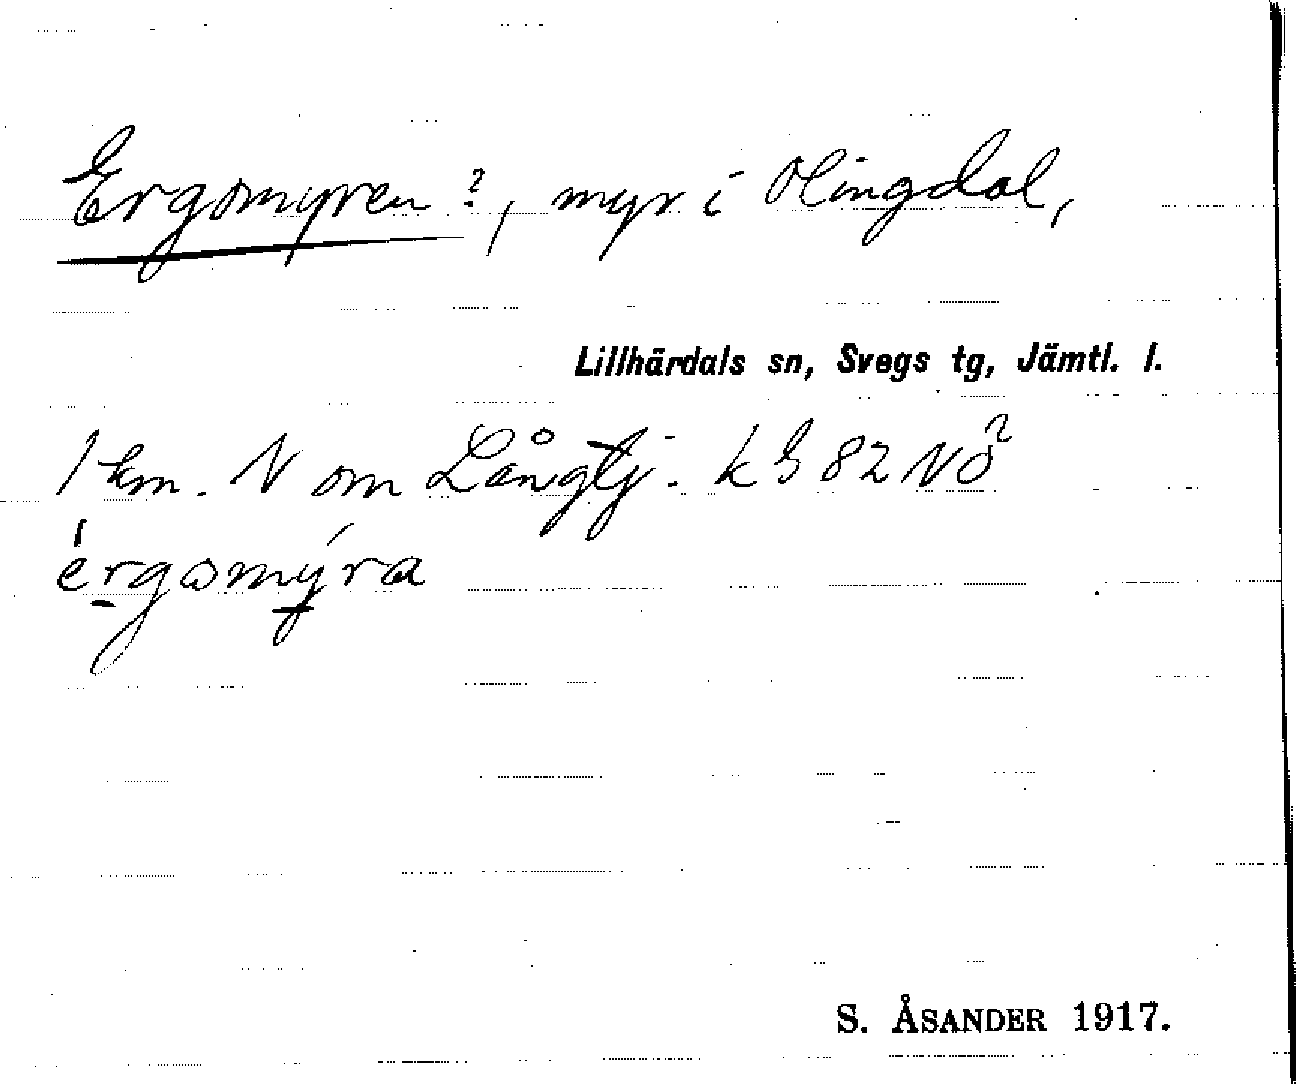 Ergomyren?, myr i Olingdal,
Lillhärdals sn, Svegs tg, Jämtl. l.
1 km. N om Långtj. k G 82 NÖ
érgomýra
S. ÅSANDER 1917.